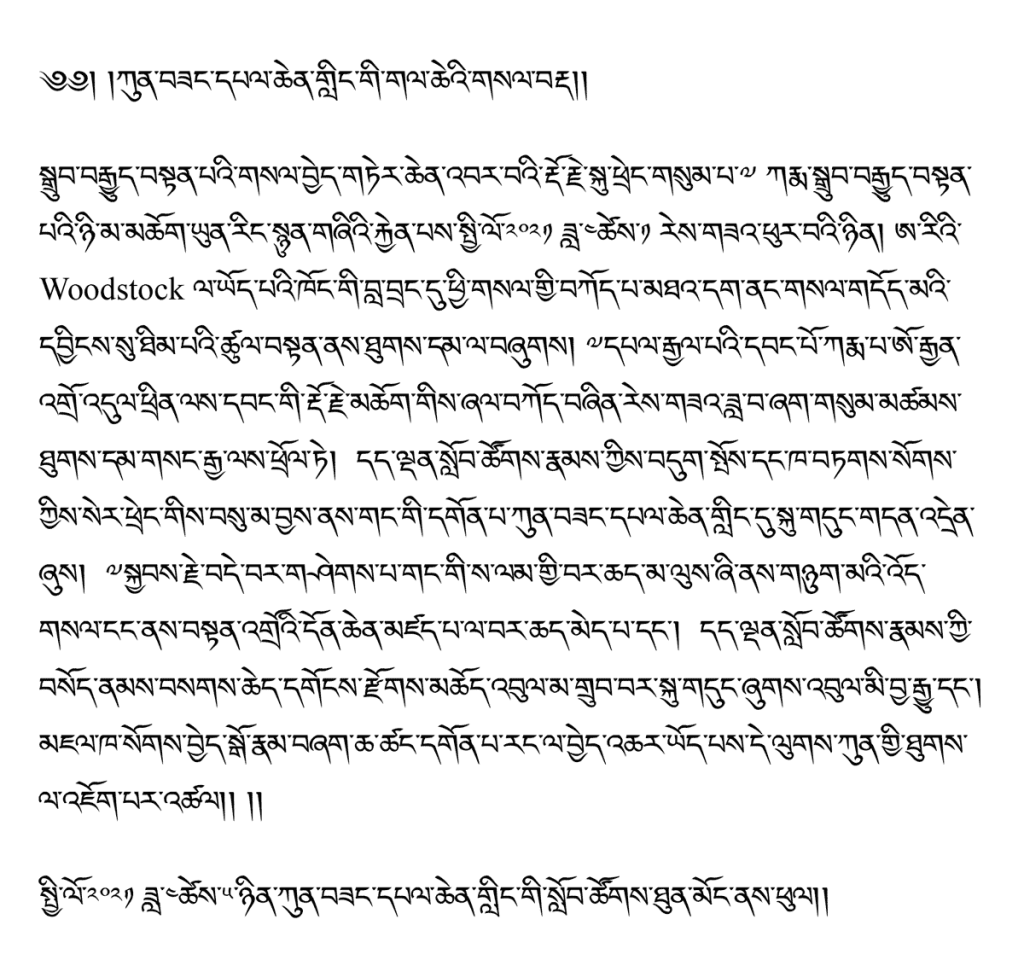 ༄༅། །ཀུན་བཟང་དཔལ་ཆེན་གླིང་གི་གལ་ཆེའི་གསལ་བརྡ།།
སྒྲུབ་བརྒྱུད་བསྟན་པའི་གསལ་བྱེད་གཏེར་ཆེན་འབར་བའི་རྡོ་རྗེ་སྐུ་ཕྲེང་གསུམ་པ་༧ ཀརྨ་སྒྲུབ་བརྒྱུད་བསྟན་
པའི་ཉི་མ་མཆོག་ཡུན་རིང་སྙུན་གཞིའི་རྐྱེན་པས་སྤྱི་ལོ་༢༠༢༡ ཟླ་༤ཚེས་༡ རེས་གཟའ་ཕུར་བའི་ཉིན། ཨ་རིའི་
Woodstock ལ་ཡོད་པའི་ཁོང་གི་བླ་བྲང་དུ་ཕྱི་གསལ་གྱི་བཀོད་པ་མཐའ་དག་ནང་གསལ་གདོད་མའི་
དབྱིངས་སུ་ཐིམ་པའི་ཚུལ་བསྟན་ནས་ཐུགས་དམ་ལ་བཞུགས། ༧དཔལ་རྒྱལ་པའི་དབང་པོ་ཀརྨ་པ་ཨོ་རྒྱན་
འགྲོ་འདུལ་ཕྲིན་ལས་དབང་གི་རྡོ་རྗེ་མཆོག་གིས་ཞལ་བཀོད་བཞིན་རེས་གཟའ་ཟླ་བ་ཞག་གསུམ་མཚམས་
ཐུགས་དམ་གསང་རྒྱ་ལས་ཕྲོལ་ཏེ། དད་ལྡན་སློབ་ཚོགས་རྣམས་ཀྱིས་བདུག་སྤོས་དང་ཁ་བཏགས་སོགས་
ཀྱིས་སེར་ཕྲེང་གིས་བསུ་མ་བྱས་ནས་གང་གི་དགོན་པ་ཀུན་བཟང་དཔལ་ཆེན་གླིང་དུ་སྐུ་གདུང་གདན་འདྲེན་
ཞུས། ༧སྐྱབས་རྗེ་བདེ་བར་གཤེགས་པ་གང་གི་ས་ལམ་གྱི་བར་ཆད་མ་ལུས་ཞི་ནས་གཉུག་མའི་འོད་
གསལ་ངང་ནས་བསྟན་འགྲོའི་དོན་ཆེན་མཛད་པ་ལ་བར་ཆད་མེད་པ་དང་། དད་ལྡན་སློབ་ཚོགས་རྣམས་ཀྱི་
བསོད་ནམས་བསགས་ཆེད་དགོངས་རྫོགས་མཆོད་འབུལ་མ་གྲུབ་བར་སྐུ་གདུང་ཞུགས་འབུལ་མི་བྱ་རྒྱུ་དང་།
མཇལ་ཁ་སོགས་བྱེད་སྒོ་རྣམ་བཞག་ཆ་ཚང་དགོན་པ་རང་ལ་བྱེད་འཆར་ཡོད་པས་དེ་ལུགས་ཀུན་གྱི་ཐུགས་
ལ་འཇོག་པར་འཚལ།། །།
སྤྱི་ལོ་༢༠༢༡ ཟླ་༤ཚེས་༥་ཉིན་ཀུན་བཟང་དཔལ་ཆེན་གླིང་གི་སློབ་ཚོགས་ཐུན་མོང་ནས་ཕུལ།།